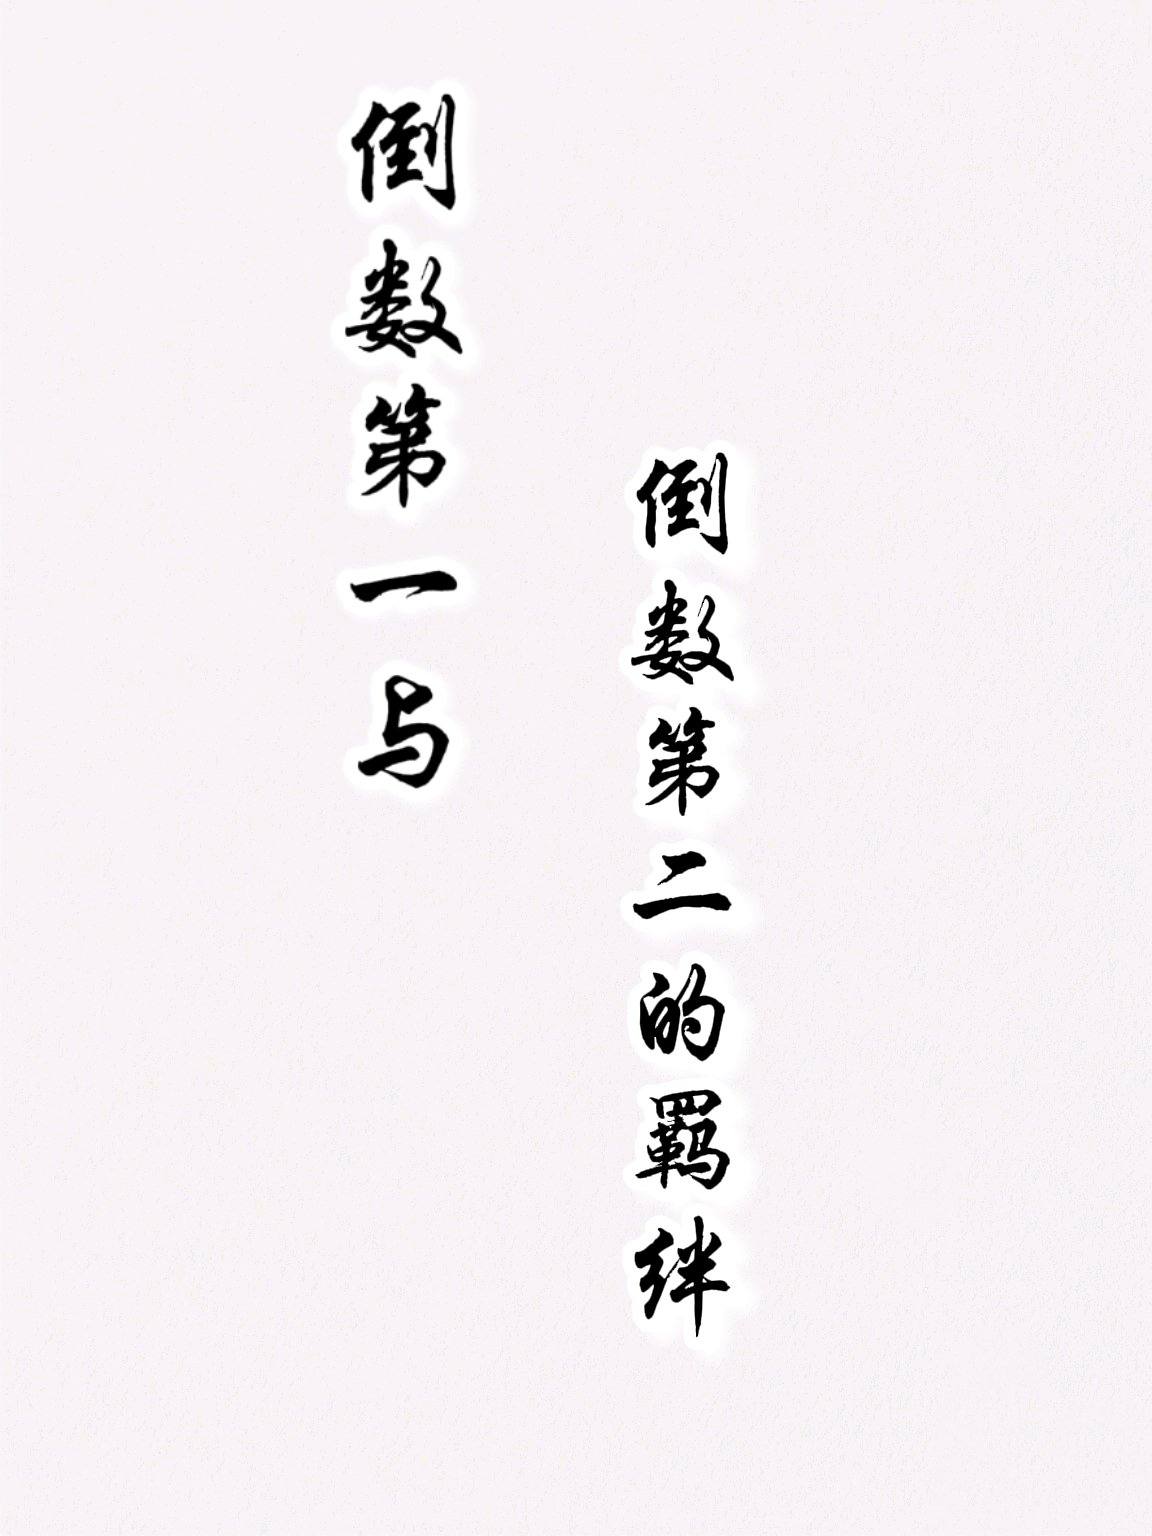 倒数第一与
倒数第二的羁绊